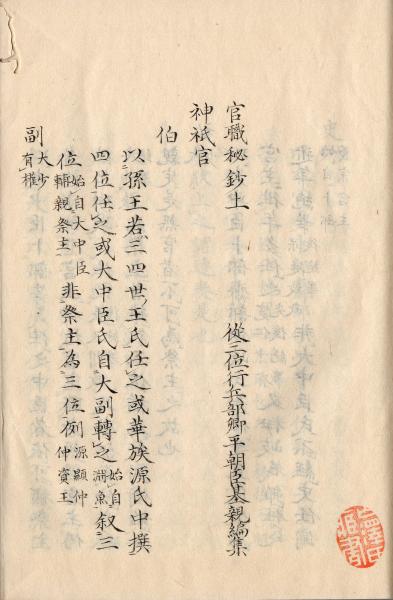 官職秘鈔上
従三位行兵部卿平朝臣基親編集
神祇官
伯
以孫王若三四世王氏任之或華族源氏中撰
四位任之或大中臣氏自大副轉之始自淵魚叙三
位始自大中臣輔親祭主非祭主為三位例源顕仲仲資王
副大少有権